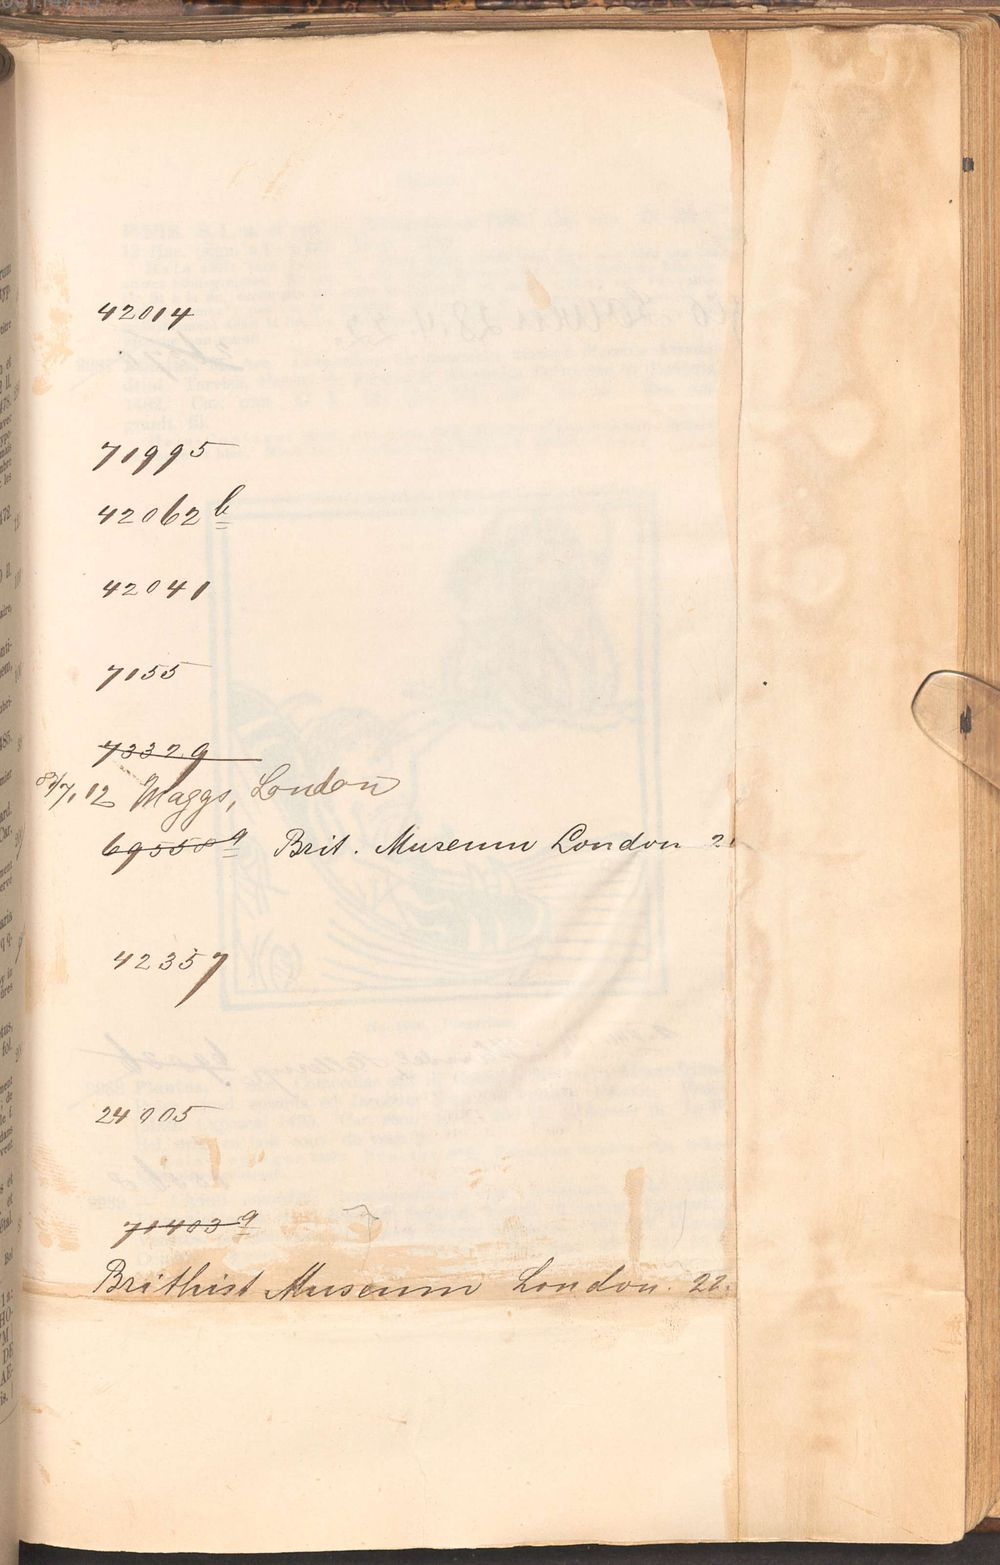 42014
71995
42062 b
42041
7155
73379
7, 12 Maggs, London
69558 a Brit. Museum London
42357
24005
71403 a
Brithist Museum London. 22.